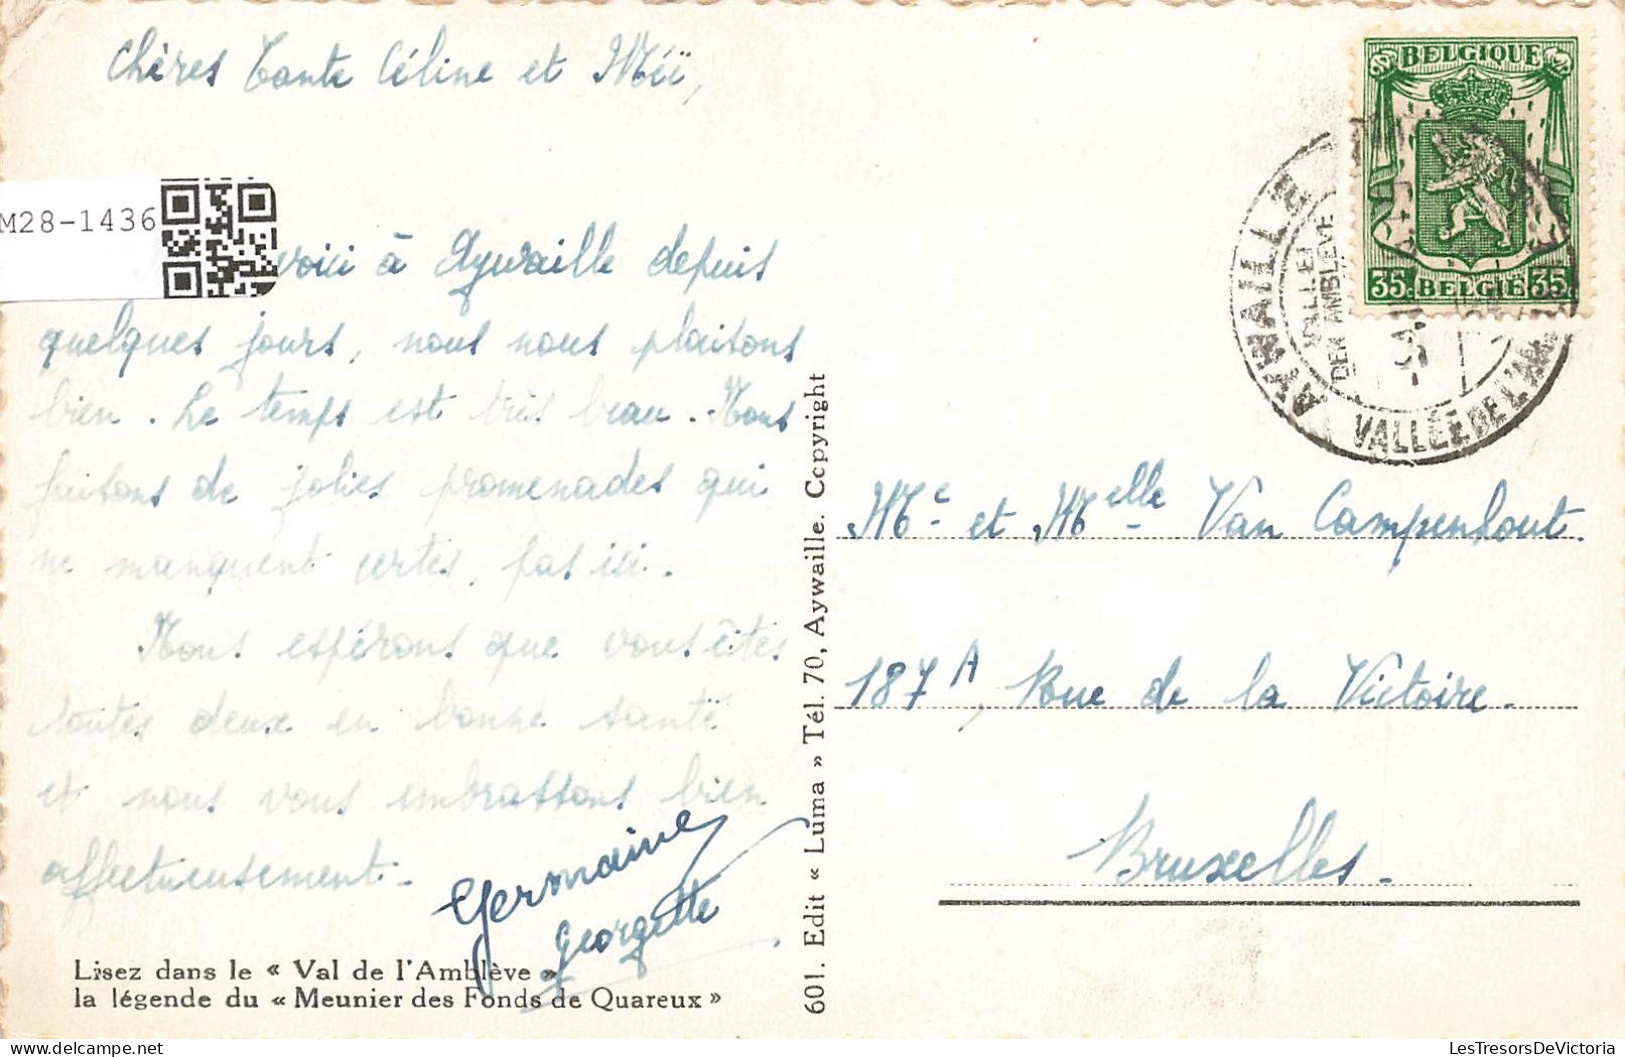 Chères Tante Céline et Méï,
M28-1436
voici à Aywaille depuis
quelques jours, nous nous plaisons
bien. Le temps est très beau. Nous
faisons de jolies promenades qui
ne manquent certes, pas ici.
Nous espérons que vous êtes
toutes deux en bonne santé
et nous vous embrassons bien
affectueusement.
Germaine
Georgette
Lisez dans le « Val de l'Amblève »
la légende du « Meunier des Fonds de Quareux »
601. Edit « Luma » Tél. 70, Aywaille. Copyright
BELGIQUE
35c BELGIE 35c
AYWAILLE
VALLEI
DER AMBLEVE
VALLEE DE L'AM
Me et Melle Van Campenhout.
187A, Rue de la Victoire.
Bruxelles.
LesTresorsDeVictoria